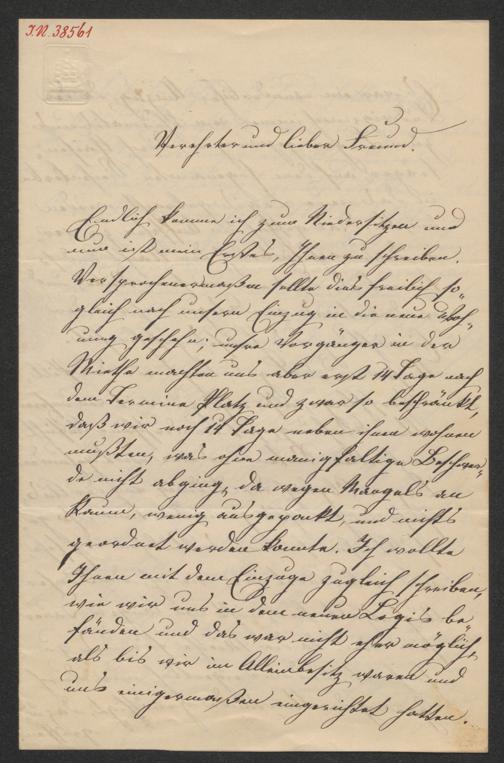 I.N. 38561
Verehrter und lieber Freund.
Endlich komme ich zum Niedersitzen und
nun ist mein Erstes, Ihnen zu schreiben.
Versprochenermaßen sollte dies freilich so-
gleich nach unserm Einzug in die neue Woh-
nung geschehn; unsre Vorgänger in der
Miethe machten uns aber erst 14 Tage nach
dem Termine Platz und zwar so beschränkt,
daß wir noch 14 Tage neben ihnen wohnen
mußten, was ohne manigfaltige Beschwer-
de nicht abging, da wegen Mangels an
Raum, wenig ausgepackt, und nichts
geordnet werden konnte. Ich wollte
Ihnen mit dem Einzuge zugleich schreiben,
wie wir uns in dem neuen Logis be-
fänden und das war nicht eher möglich,
als bis wir im Alleinbesitz waren und
uns einigermaßen eingerichtet hatten.